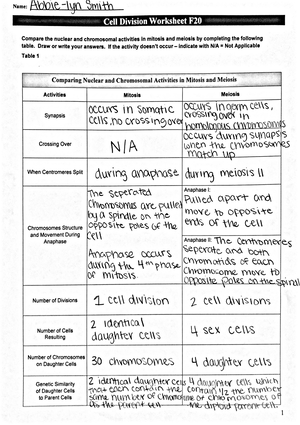 Name: Abbie-lyn Smith
Cell Division Worksheet F20
Compare the nuclear and chromosomal activities in mitosis and meiosis by completing the following
table. Draw or write your answers. If the activity doesn't occur – indicate with N/A = Not Applicable
Table 1
Comparing Nuclear and Chromosomal Activities in Mitosis and Meiosis
Activities Mitosis Meiosis
Synapsis
occurs in somatic
cells, no crossing over
occurs in germ cells,
crossing over in
homologous chromosomes
Crossing Over
N/A
occurs during synapsis
when the chromosomes
match up
When Centromeres Split
during anaphase
during meiosis II
Chromosomes Structure
and Movement During
Anaphase
The seperated
chromosomes are pulled
by a spindle on the
opposite poles of the
cell
Anaphase occurs
during the 4th phase
of mitosis.
Anaphase I:
Pulled apart and
move to opposite
ends of the cell
Anaphase II: The centromeres
seperate and both
chromatids of each
chromosome move to
opposite poles on the spinal
Number of Divisions
1 cell division
2 cell divisions
Number of Cells
Resulting
2 identical
daughter cells
4 sex cells
Number of Chromosomes
on Daughter Cells
30 chromosomes
4 daughter cells
Genetic Similarity
of Daughter Cells
to Parent Cells
2 identical daughter cells
that each contain the
same number of chromosomes
as the parent cell
4 daughter cells which
contain 1/2 the number
of chromosomes of
the diploid parent cell.
1